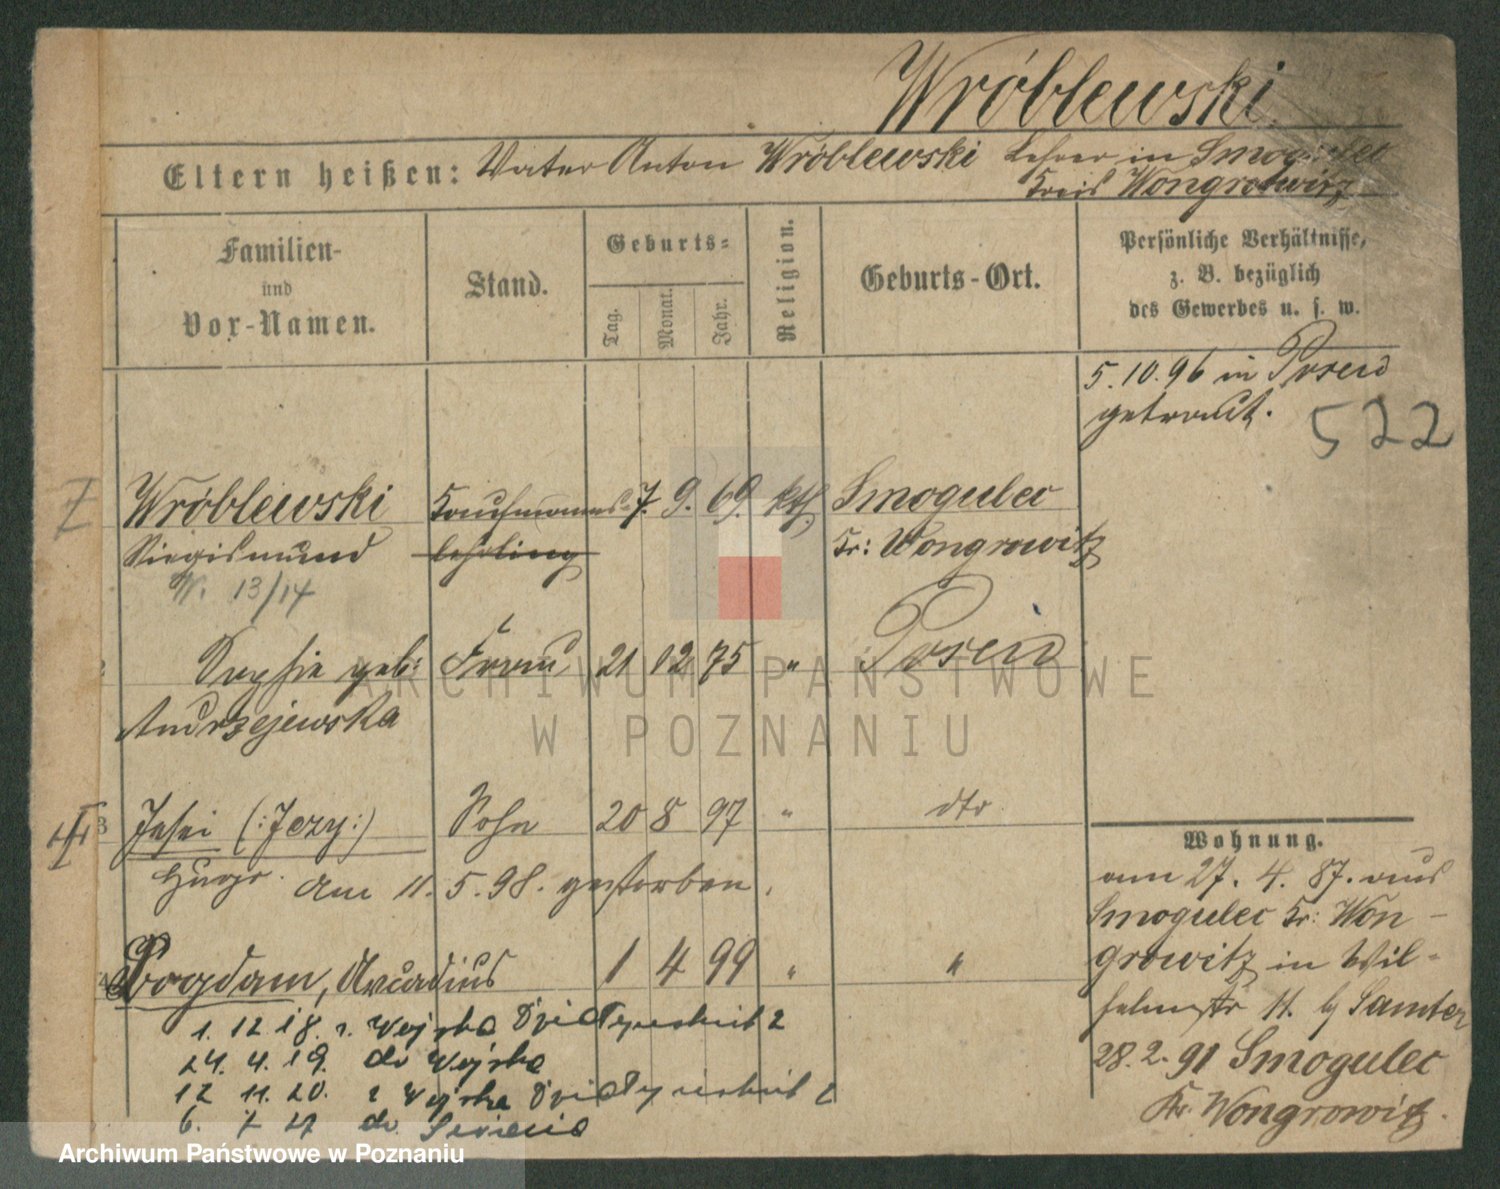 Wróblewski.
Eltern heißen: Vater Anton Wróblewski Lehrer in Smogulec
Kreis Wongrowitz
Familien-
und
Vor-Namen.
Stand.
Geburts-
Tag.
Monat.
Jahr.
Religion.
Geburts-Ort.
Persönliche Verhältnisse,
z. B. bezüglich
des Gewerbes u. s. w.
5.10.96 in Posen
getraut.
522
Wróblewski Kaufmanns- 7. 9. 69. kth. Smogulec
Siegismund lehrling Kr: Wongrowitz
W. 13/14
Sophie geb: Frau 21 12 75 " Posen
Andrzejewska
3 (:Jezy:) Sohn 20 8 97 " dto
am 11. 5. 98. gestorben.
4 Bogdam, Arcadius 1 4 99 " "
1. 12 18. z Wojska
24. 4. 19. do Wojska
12 11. 20. z Wojska
6. 7 27 do
Wohnung.
am 27. 4. 87. aus
Smogulec Kr: Won-
growitz in Wil-
helmstr 11. b/ Samter
28.2.91 Smogulec
Kr. Wongrowitz.
ARCHIWUM PAŃSTWOWE
W POZNANIU
Archiwum Państwowe w Poznaniu